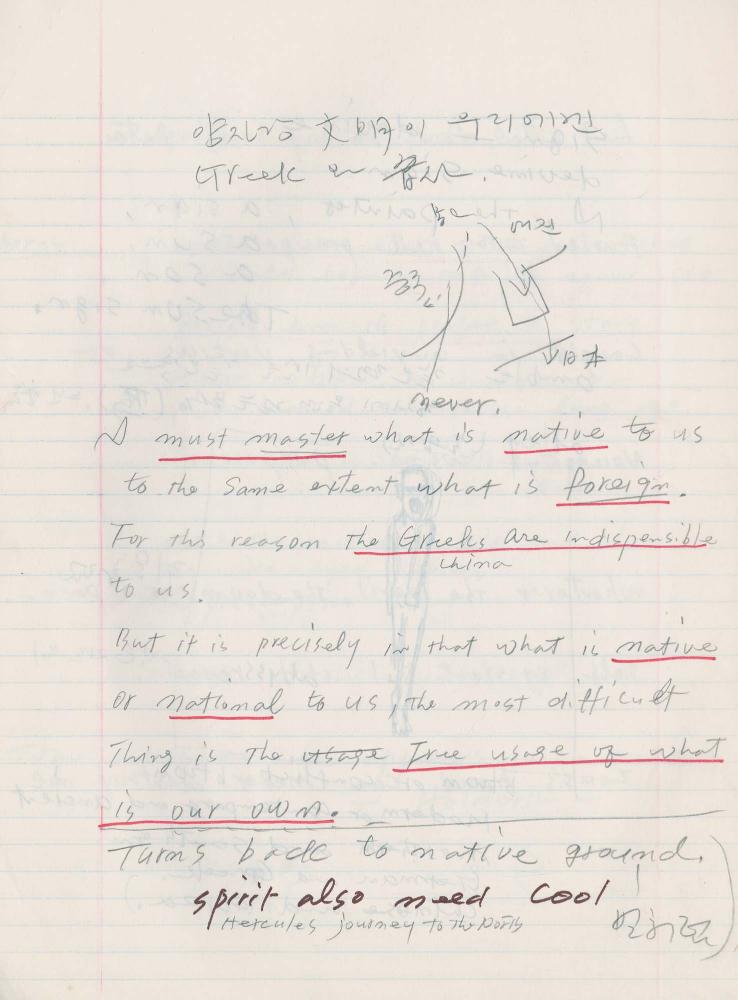 양자강 文明이 우리에겐
Greek
never.
日本
must master what is native to us
to the same extent what is foreign.
For this reason the Greeks are indispensible
china
to us.
But it is precisely in that what is native
or national to us, the most difficult
Thing is the usage free usage of what
is our own.
Turns back to native ground.
spirit also need cool
Hercules journey to the North